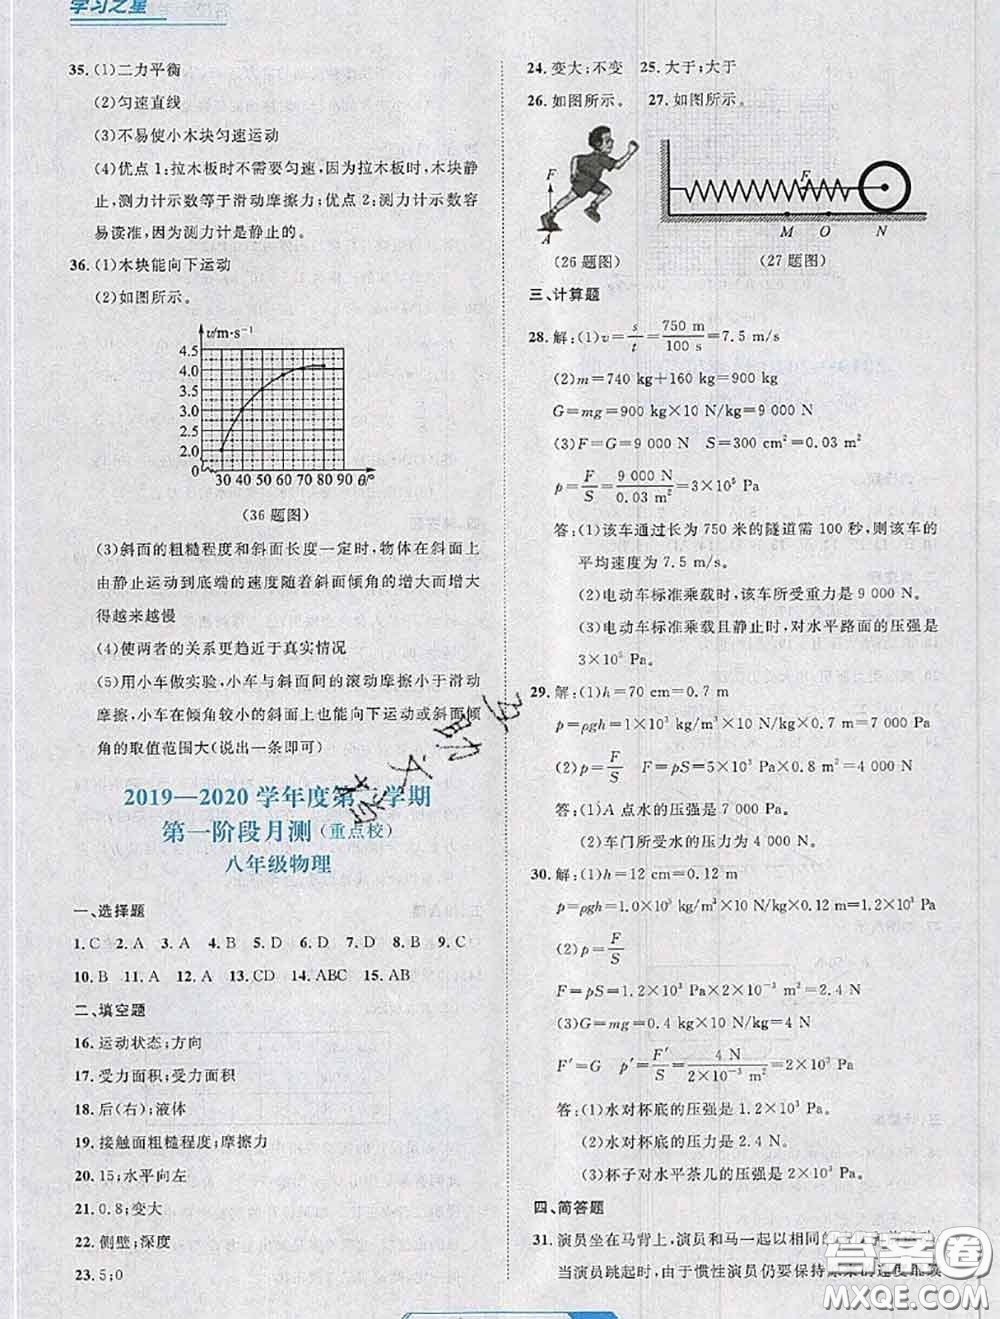 学习之星
35.(1)二力平衡
(2)匀速直线
(3)不易使小木块匀速运动
(4)优点1:拉木板时不需要匀速,因为拉木板时,木块静
止,测力计示数等于滑动摩擦力;优点2:测力计示数容
易读准,因为测力计是静止的。
36.(1)木块能向下运动
(2)如图所示。
v/m·s⁻¹
4.5
4.0
3.5
3.0
2.5
2.0
0 30 40 50 60 70 80 90 θ/°
(36题图)
(3)斜面的粗糙程度和斜面长度一定时,物体在斜面上
由静止运动到底端的速度随着斜面倾角的增大而增大
得越来越慢
(4)使两者的关系更趋近于真实情况
(5)用小车做实验,小车与斜面间的滚动摩擦小于滑动
摩擦,小车在倾角较小的斜面上也能向下运动或斜面倾
角的取值范围大(说出一条即可)
2019—2020学年度第 学期
第一阶段月测(重点校)
八年级物理
一、选择题
1.C 2.A 3.A 4.B 5.D 6.D 7.D 8.B 9.C
10.B 11.A 12.CD 13.CD 14.ABC 15.AB
二、填空题
16.运动状态;方向
17.受力面积;受力面积
18.后(右);液体
19.接触面粗糙程度;摩擦力
20.15;水平向左
21.0.8;变大
22.侧壁;深度
23.5;0
24.变大;不变 25.大于;大于
26.如图所示。 27.如图所示。
F
A
F
M O N
(26题图) (27题图)
三、计算题
28.解:(1)v=s/t=750 m/100 s=7.5 m/s
(2)m=740 kg+160 kg=900 kg
G=mg=900 kg×10 N/kg=9 000 N
(3)F=G=9 000 N S=300 cm²=0.03 m²
p=F/S=9 000 N/0.03 m²=3×10⁵ Pa
答:(1)该车通过长为750米的隧道需100秒,则该车的
平均速度为7.5 m/s。
(2)电动车标准乘载时,该车所受重力是9 000 N。
(3)电动车标准乘载且静止时,对水平路面的压强是
3×10⁵ Pa。
29.解:(1)h=70 cm=0.7 m
p=ρgh=1×10³ kg/m³×10 N/kg×0.7 m=7 000 Pa
(2)p=F/S F=pS=5 000 Pa×1 m²=5 000 N
答:(1)A点水的压强是7 000 Pa。
(2)车门所受水的压力是5 000 N。
30.解:(1)h=12 cm=0.12 m
p=ρgh=1.0×10³ kg/m³×10 N/kg×0.12 m=1.2×10³ Pa
(2)p=F/S
F=pS=1.2×10³ Pa×2×10⁻³ m²=2.4 N
(3)G=mg=0.4 kg×10 N/kg=4 N
F′=G p′=F′/S=4 N/2×10⁻³ m²=2×10³ Pa
答:(1)水对杯底的压强是1.2×10³ Pa。
(2)水对杯底的压力是2.4 N。
(3)杯子对水平茶几的压强是2×10³ Pa。
四、简答题
31.演员坐在马背上,演员和马一起以相同的
当演员跳起时,由于惯性演员仍要保持原来的速度
答案卷
MXQE.COM